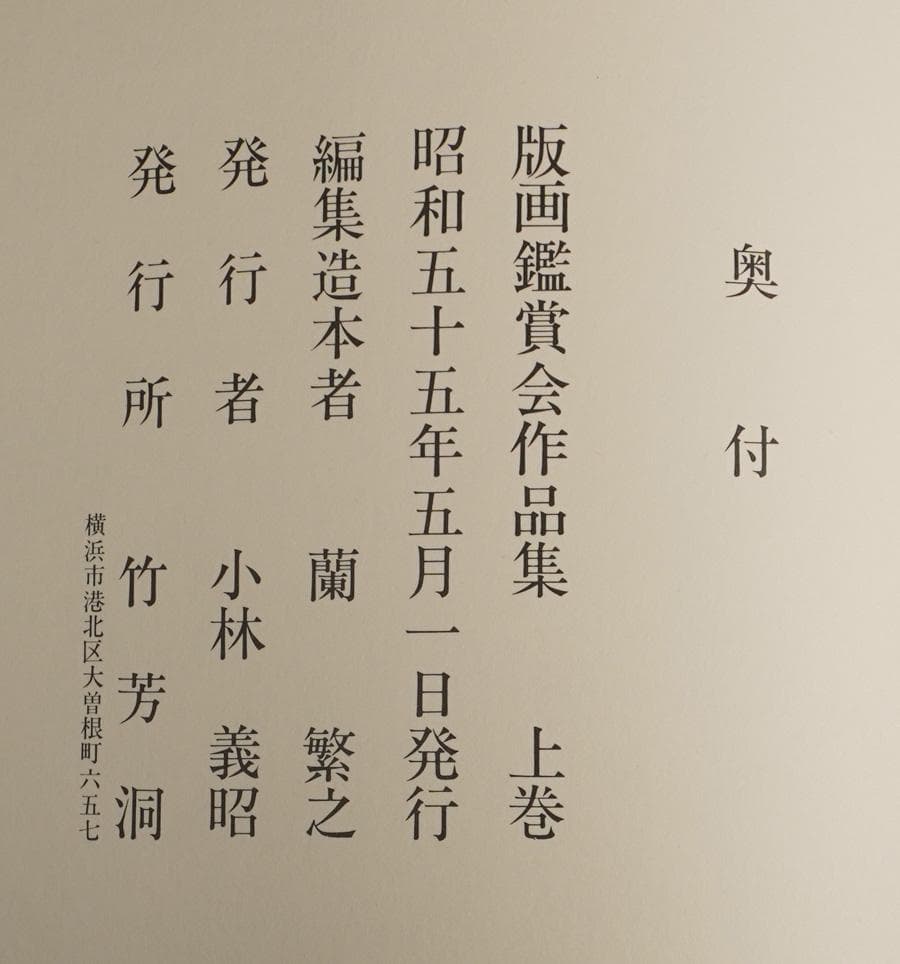 奥付
版画鑑賞会作品集 上巻
昭和五十五年五月一日発行
編集造本者 蘭 繁之
発行者 小林 義昭
発行所 竹芳洞
横浜市港北区大曽根町六五七